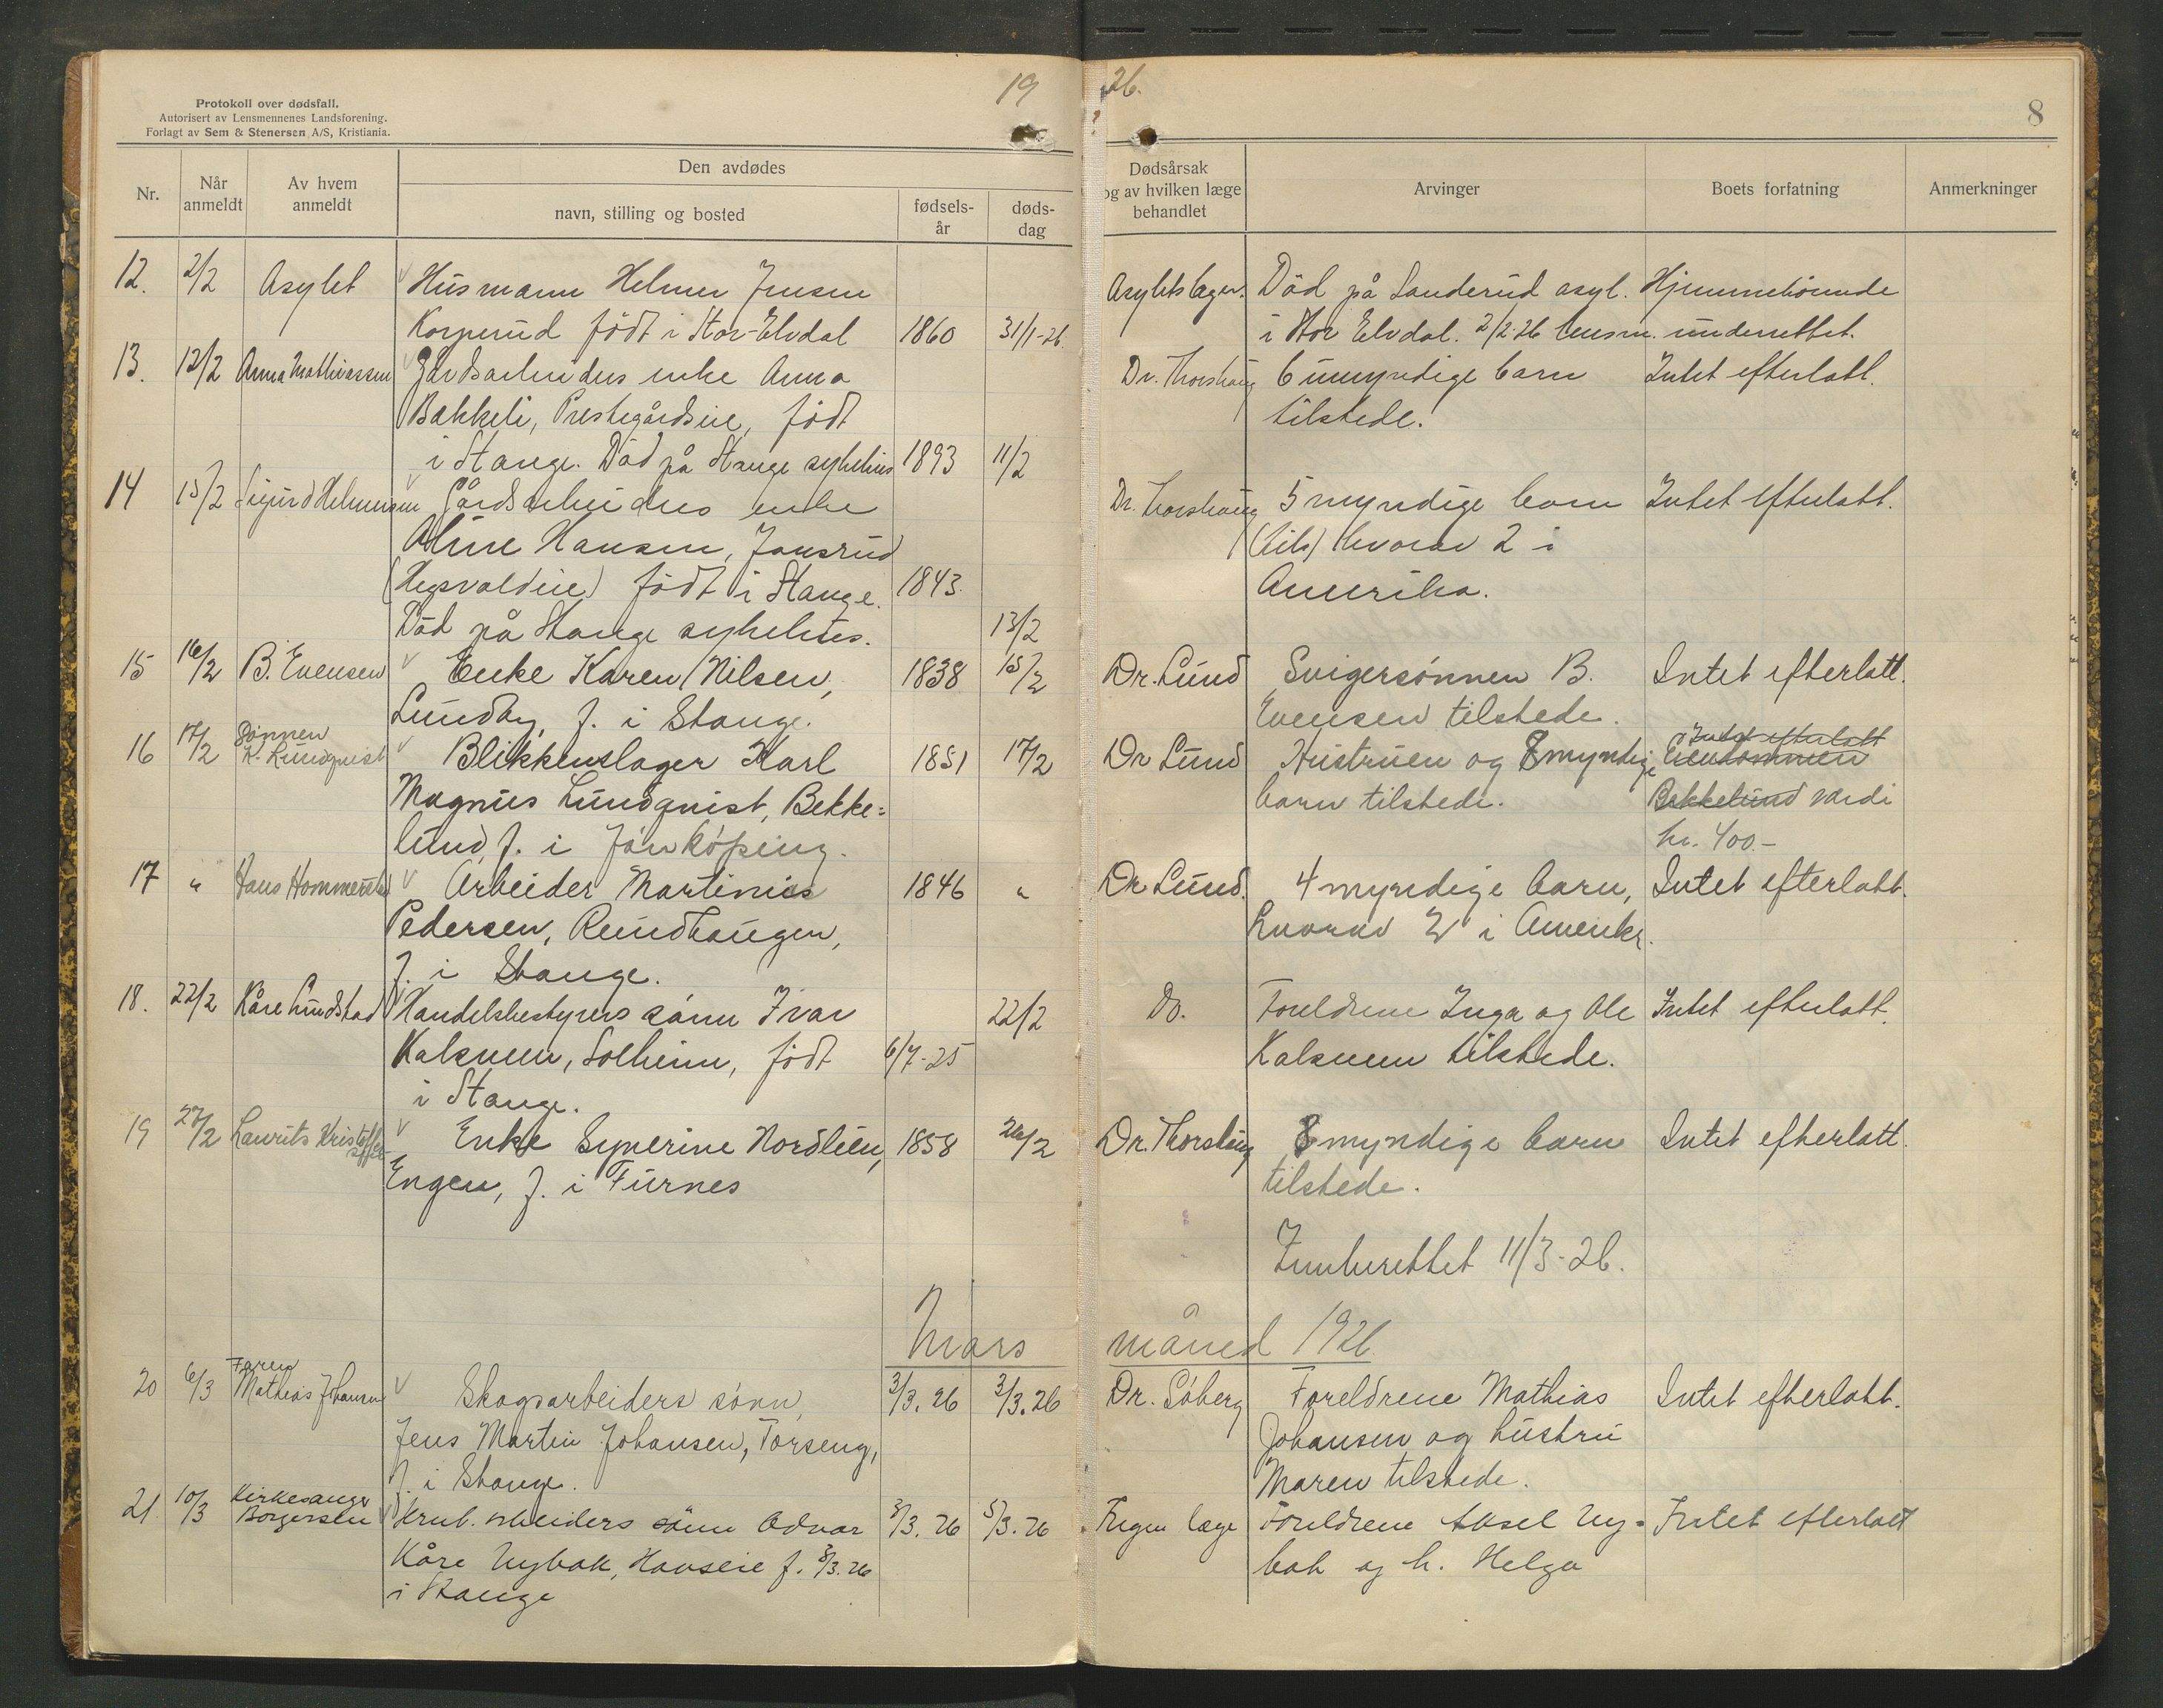 Protokoll over dødsfall.
Autorisert av Lensmennenes Landsforening.
Forlagt av Sem & Stenersen A/S, Kristiania.
19
Nr.
Når
anmeldt
Av hvem
anmeldt
Den avdødes
navn, stilling og bosted
fødsels-
år
døds-
dag
12. 2/2 Asylet Husmann Helmer Jensen
Korperud født i Stor-Elvdal 1860 31/1-26.
13. 12/2 Anna Mathiassen Gårdsarbeiders enke Anna
Bakkeli, Prestegårdseie, født
i Stange. Död på Stange sykehus 1893 11/2
14 15/2 Sigurd Helmersen Gårdsarbeiders enke
Oline Hansen, Jonsrud
(Hegsvoldeie) født i Stange. 1843.
Död på Stange sykehus. 13/2
15 16/2 B. Evensen Enke Karen Nilsen, 1838 15/2
Lundby, f. i Stange.
16 17/2 Sønnen
K. Lundquist Blikkenslager Karl 1851 17/2
Magnus Lundquist, Bekke=
lund, f. i Jönköping.
17 " Hans Hommerstad Arbeider Martinius 1846 "
Pedersen, Rundhaugen,
f. i Stange.
18. 22/2 Kåre Lundstad Handelsbestyrers sønn Ivar 22/2
Kalsveen, Solheim, født 6/7-25
i Stange.
19 27/2 Laurits Kristoffer
sen Enke Synerine Nordlien, 1858 26/2
Engen, f. i Furnes
Mars
20 6/3 Faren
Mathias Johansen Skogsarbeiders sønn, 3/3.26 3/3.26
Jens Martin Johansen, Torseng,
f. i Stange.
21. 10/3 Kirkesanger
Borgersen arbeiders sønn Odvar 3/3.26 5/3.26
Kåre Nybak, Honseie f. 3/3.26
i Stange
26.
8
Dødsårsak
og av hvilken læge
behandlet
Arvinger
Boets forfatning
Anmerkninger
Asylets læger. Död på Sanderud asyl. Hjemmehörende
i Stor Elvdal. 2/2-26 lensm. underrettet.
Dr. Thorshaug 6 umyndige barn Intet efterlatt.
tilstede.
Dr. Thorshaug 5 myndige barn Intet efterlatt.
(tils) hvorav 2 i
Amerika.
Dr. Lund Svigersønnen B. Intet efterlatt.
Evensen tilstede.
Intet efterlatt
Dr Lund Hustruen og 8 myndige Eiendommen
barn tilstede. Bekkelund verdi
kr. 400.-
Dr Lund. 4 myndige barn, Intet efterlatt.
hvorav 2 i Amerika.
Do. Foreldrene Inga og Ole Intet efterlatt.
Kalsveen tilstede.
Dr. Thorshaug 8 myndige barn Intet efterlatt.
tilstede.
Innberettet 11/3-26.
måned 1926.
Dr. Söberg Foreldrene Mathias Intet efterlatt.
Johansen og hustru
Maren tilstede.
Ingen læge Foreldrene Aksel Ny= Intet efterlatt
bak og h. Helga